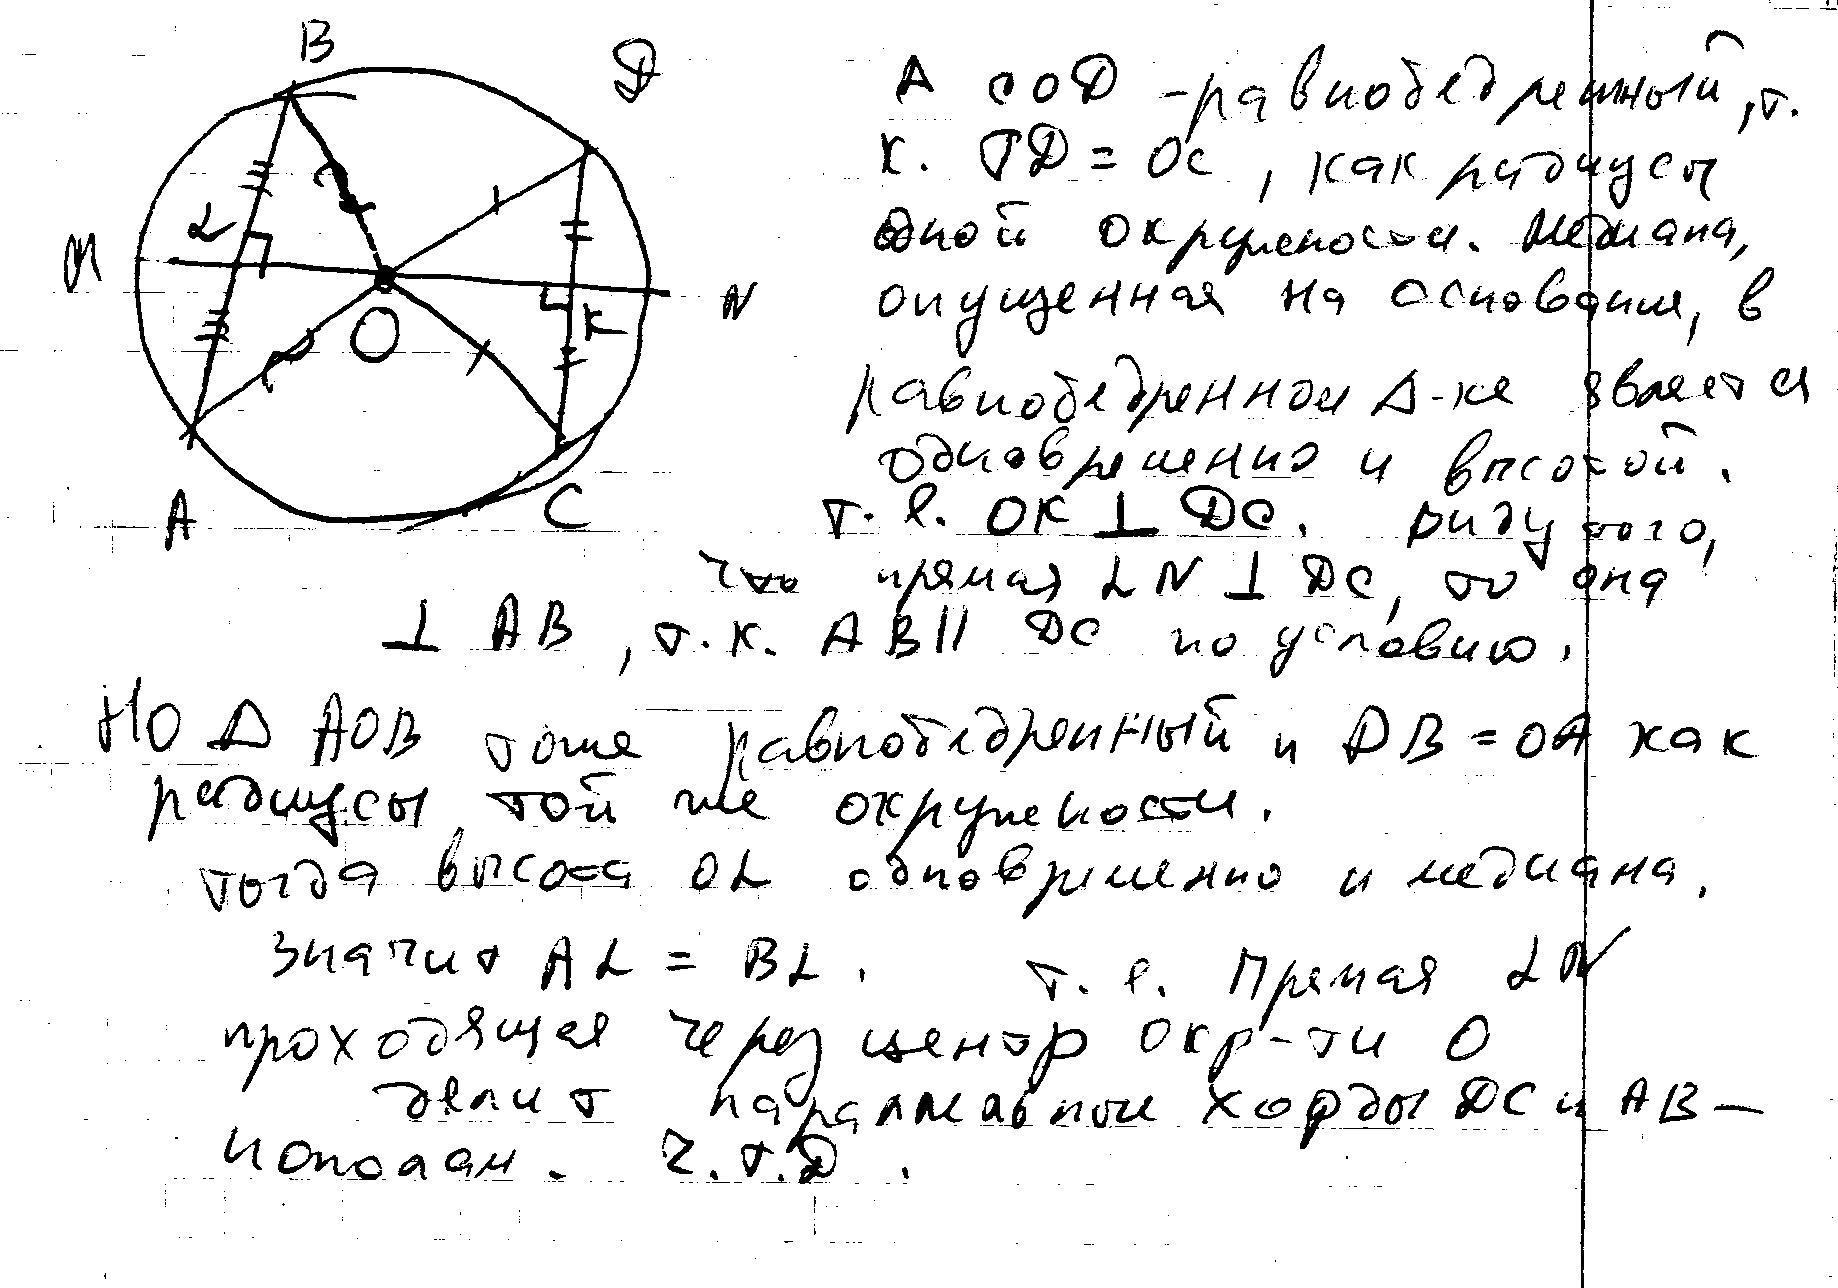 B
D
M
L
N
K
O
A
C
Δ COD - равнобедренный, т.
к. OD = OC, как радиусы
одной окружности. Медиана,
опущенная на основание, в
равнобедренном Δ-ке является
одновременно и высотой.
т. е. OK ⊥ DC. Ввиду того,
что прямая LN ⊥ DC, то она
⊥ AB, т.к. AB || DC по условию.
Но Δ AOB тоже равнобедренный и OB = OA как
радиусы той же окружности.
тогда высота OL одновременно и медиана.
значит AL = BL. т. е. Прямая LN
проходящая через центр окр-ти O
делит параллельные хорды DC и AB -
пополам. Ч.Т.Д.